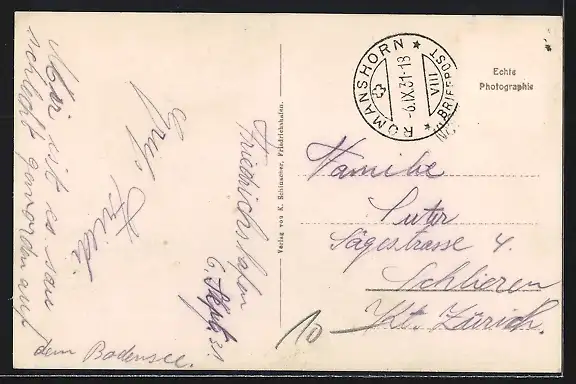 Mir ist es sau
schlecht geworden auf
dem Bodensee.
Gruß
Frieda
Friedrichshafen
6. Sept. 31.
Verlag von K. Schinacher, Friedrichshafen.
ROMANSHORN
-6.IX.31-18
VIII
BRIEFPOST
Echte
Photographie
Familie
Suter
Sägestrasse 4.
Schlieren
Kt. Zürich.
10